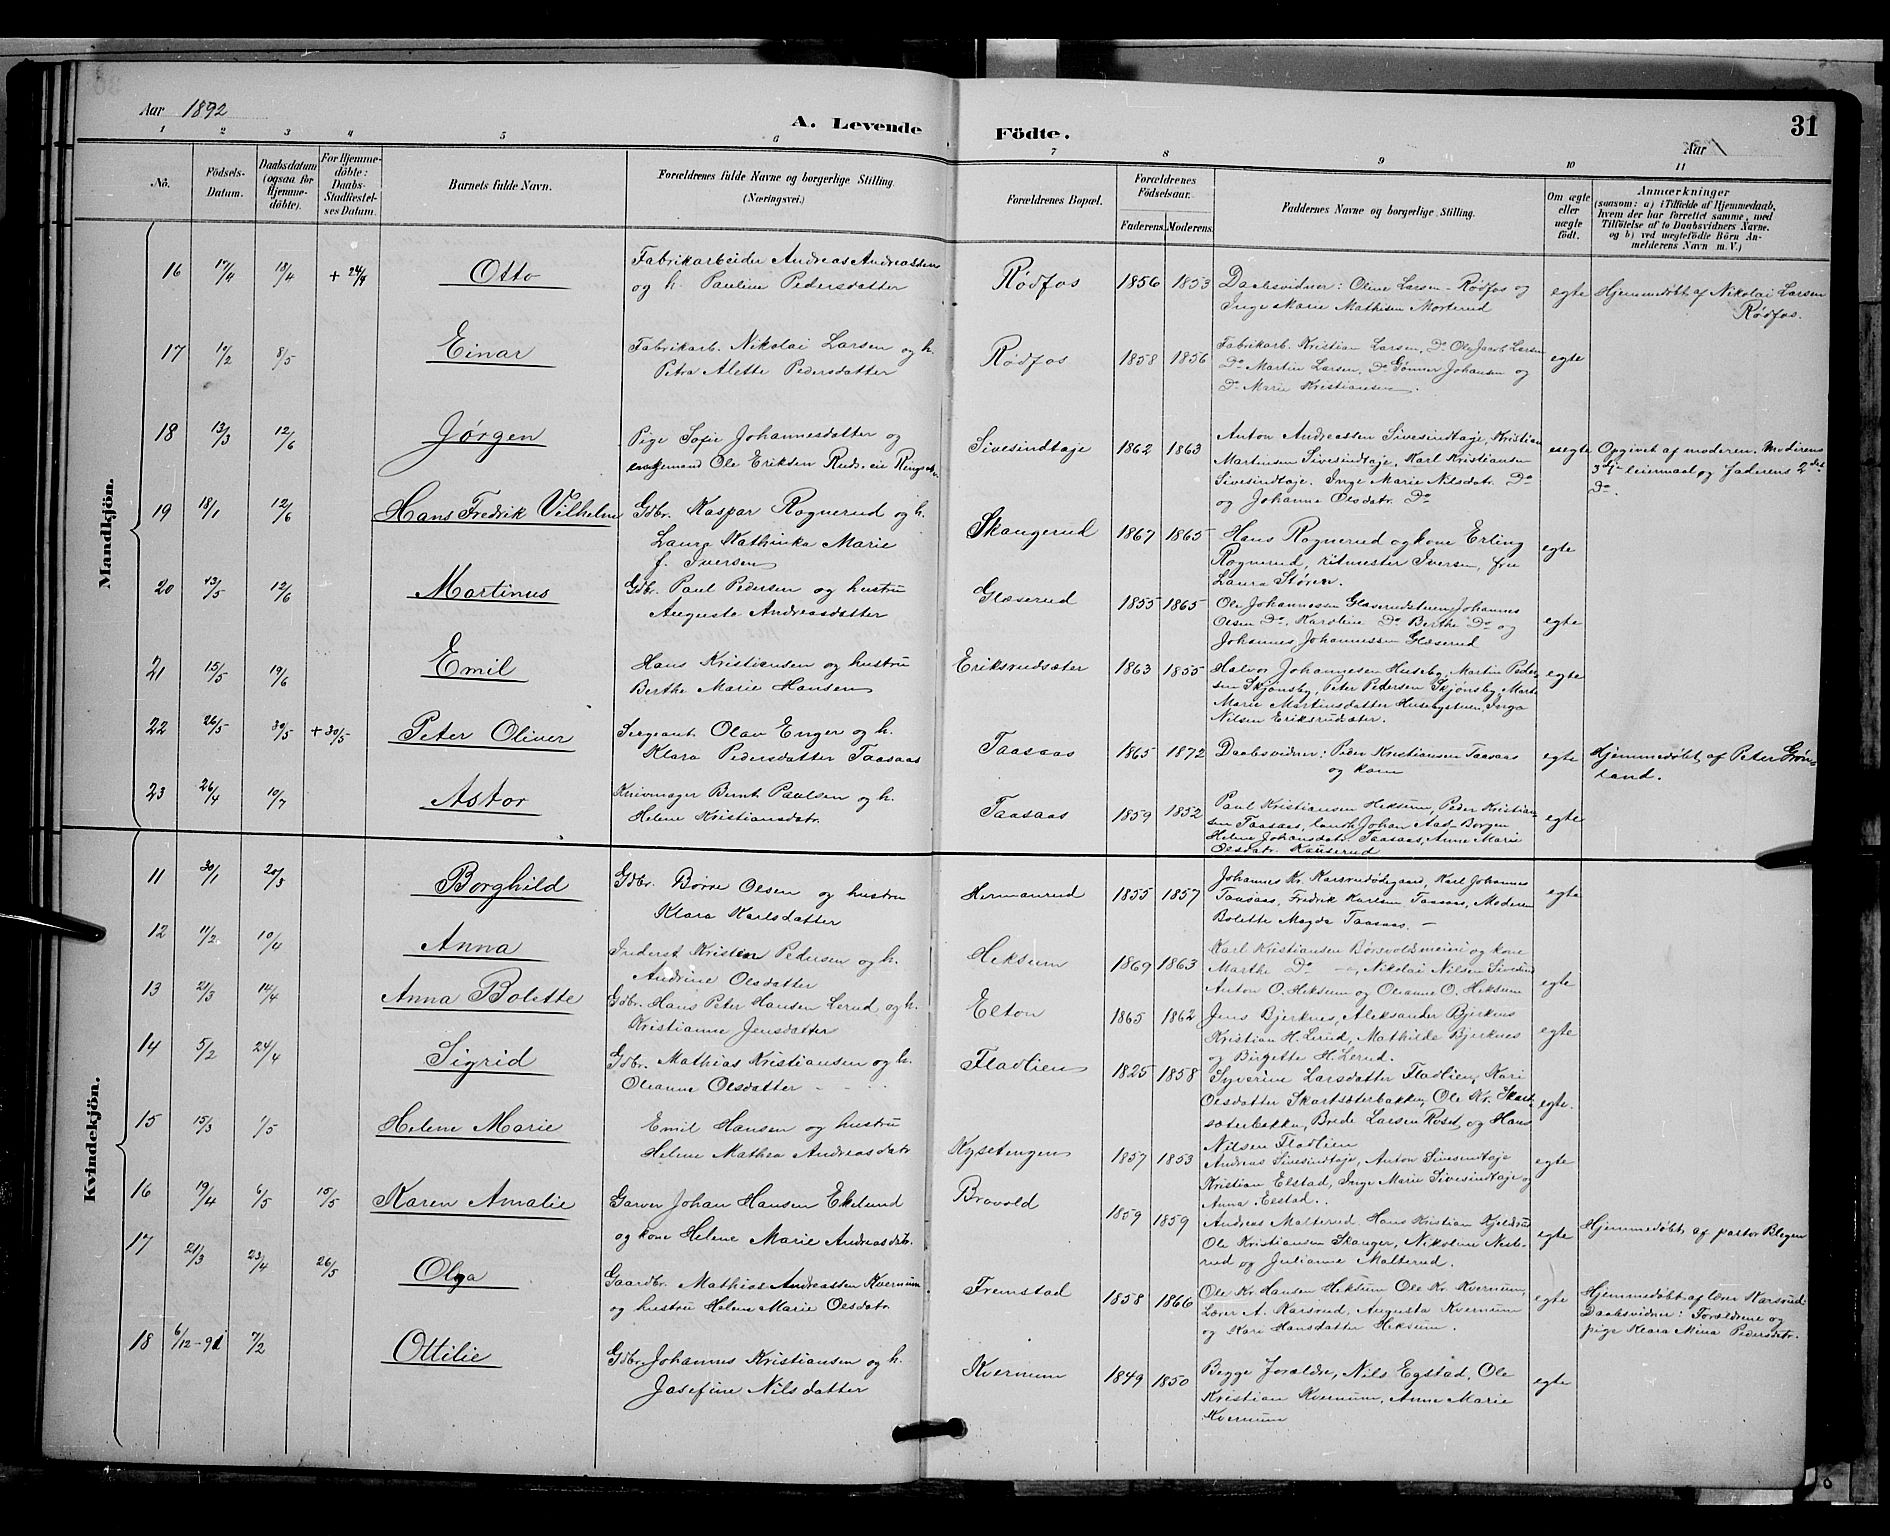 Aar 1892
A. Levende Födte.
Aar
31
1 2 3 4 5 6 7 8 9 10 11
No.
Födsels-Datum.
Daabsdatum (ogsaa for Hjemme-döbte).
For Hjemme-döbte: Daabs-Stadfæstel-ses Datum.
Barnets fulde Navn.
Forældrenes fulde Navne og borgerlige Stilling. (Næringsvei.)
Forældrenes Bopæl.
Forældrenes Födselsaar.
Faderens. Moderens.
Faddernes Navne og borgerlige Stilling.
Om ægte eller uægte födt.
Anmærkninger
(saasom: a) i Tilfælde af Hjemmedaab,
hvem der har forrettet samme, med
Tilföielse af to Daabsvidners Navne.
og b) ved uægtefödte Börn An-
melderens Navn m. V.)
Mandkjön.
16 17/4 18/4 + 24/4 Otto
Fabrikarbeider Andreas Andreassen
og h. Pauline Pedersdatter
Rødfos 1856 1853
Daabsvidner: Oline Larsen - Rødfos og
Inge Marie Mathisen Morterud
egte
Hjemmedøbt af Nikolai Larsen
Rødfos.
17 /2 8/5 Einar
Fabrikarb. Nikolai Larsen og h.
Petra Alette Pedersdatter
Rødfos 1858 1856
Fabrikarb. Kristian Larsen, Do Ole Jacob Larsen
Do Martin Larsen, Do Gunner Johansen og
Do Marie Kristiansen.
egte
18 13/3 12/6 Jørgen
Pige Sofie Johannesdatter og
enkemand Ole Eriksen Ruds. eie
Sivesindtaje 1862 1863
Anton Andreassen Sivesindtaje, Kristian
Martinsen Sivesindtaje, Karl Kristiansen
Sivesindtaje. Inge Marie Nilsdatr. Do
og Johanne Olsdatr. Do
uegte
Opgivet af moderen. Moderens
3die leiermaal og faderens 2det
Do.
19 18/1 12/6 Hans Fredrik Vilhelm
Gdbr. Kaspar Rognerud og h.
Laura Kathinka Marie
f. Iversen
Skangerud 1867 1865
Hans Rognerud og kone Erling
Rognerud, ritmester Iversen, fru
Laura Støren.
egte
20 13/5 12/6 Martinus
Gdb. Paul Pedersen og hustru
Augusta Andreasdatter
Glæserud 1855 1865
Ole Johannessen Glæserudstuen, Johannes
Olsen Do, Karoline Do Berthe Do og
Johannes Johannessen Glæserud
egte
21 15/5 19/6 Emil
Hans Kristiansen og hustru
Berthe Marie Hansen
Eriksrudsæter 1863 1855
Halvor Johannesen Huseby, Martin Peder-
sen Skjønsby, Peter Pedersen Skjønsby, Marte
Marie Martinsdatter Husebystuen, Inga
Nilsen Eriksrudsæter.
egte
22 26/5 30/5 + 30/5 Peter Oliver
Sergeant Olav Enger og h.
Klara Pedersdatter Taasaas
Taasaas 1865 1872
Daabsvidner: Peder Kristiansen Taasaas
og kone
egte
Hjemmedøbt af Peter Grøn-
land.
23 26/4 10/7 Astor
Knivmager Bernt Paulsen og h.
Helene Kristiansdatr.
Taasaas 1859 1852
Paul Kristiansen Heksum, Peder Kristian-
sen Taasaas, Johan Aas Borgen
Helene Johansdatr. Taasaas, Anne Marie
Olsdatr. Kauserud
egte
Kvindekjön.
11 30/1 20/3 Borghild
Gdbr. Børre Olsen og hustru
Klara Karlsdatter
Hermanrud 1855 1857
Johannes Kr. Karsrudødegaard, Karl Johannes
Taasaas, Fredrik Karlsen Taasaas, Moderen
Bolette Magda Taasaas. -
egte
12 11/2 10/4 Anna
Inderst Kristen Pedersen og h.
Andrine Olsdatter
Heksum 1869 1863
Karl Kristiansen Børsvoldsmeieri og kone
Marthe Do, Nikolai Nilsen Sivesind
Anton O. Heksum og Oleanne O. Heksum
egte
13 21/3 14/4 Anna Bolette
Gdbr. Hans Peter Hansen Lerud og h.
Kristianne Jensdatter
Elton 1865 1862
Jens Bjerknes, Aleksander Bjerknes
Kristian H. Lerud, Mathilde Bjerknes
og Birgette H. Lerud.
egte
14 5/2 24/4 Sigrid
Gdbr. Mathias Kristiansen og h.
Oleanne Olsdatter
Fladlien 1825 1858
Syverine Larsdatter Fladlien, Kari
Olsdatter Skartsæterbakken, Ole Kr. Skart-
sæterbakken, Brede Larsen Roset, og Hans
Nilsen Fladlien
egte.
15 15/3 1/5 Helene Marie
Emil Hansen og hustru
Helene Mathea Andreasdatr
Kysetengen 1857 1853
Andreas Sivesindtaje, Anton Sivesindtaje
Kristian Elstad, Inge Marie Sivesindtaje og
Anna Elstad..
egte
16 19/4 6/5 15/5 Karen Amalie
Garver Johan Hansen Ekelund
og kone Helene Marie Andreasdatr.
Bravold 1859 1859
Andreas Malterud, Hans Kristian Kjelsrud
Ole Kristiansen Skanger, Nikoline Nest-
rud og Julianne Malterud.
egte
Hjemmedøbt af pastor Blegen
17 21/3 23/4 26/5 Olga
Gaardbr. Mathias Andreassen Kvernum
og hustru Helene Marie Olsdatr.
Fremstad 1858 1866
Ole Kr. Hansen Heksum Ole Kr. Kvernum,
Lærer A. Karsrud, Augusta Kvernum
og Kari Hansdatter Heksum.
egte
Hjemmedøbt af lærer Karsrud
Daabsvidner: Forældrene og
pige Klara Mina Pedersdatr.
18 6/12-91 7/2 Ottilie
Gdbr. Johannes Kristiansen og h.
Josefine Nilsdatter
Kvernum 1849 1850
Begge forældre, Nils Egstad, Ole
Kristian Kvernum, Anne Marie
Kvernum
egte